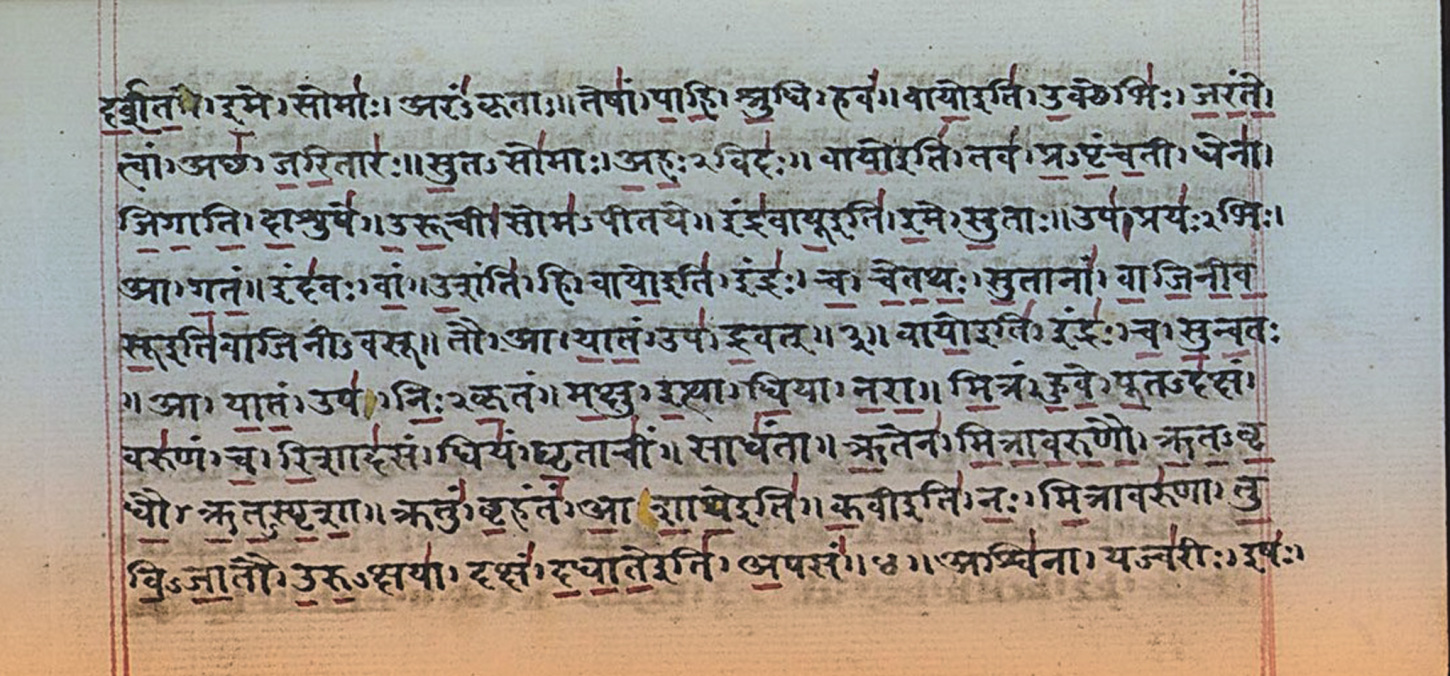 दर्शत। इमे। सोमाः। अरंऽकृताः॥ तेषां। पाहि। श्रुधि। हवं॥ वायोइति। उक्थेभिः। जरंते।
त्वां। अछ। जरितारः॥ सुतऽसोमाः। अहःऽविदः॥ वायोइति। तव। प्रऽपृंचती। धेना।
जिगाति। दाशुषे॥ उरूची। सोमऽपीतये॥ इंद्रवायूइति। इमे। सुताः॥ उप। प्रयःऽभिः।
आ। गतं॥ इंदवः। वां॥ उशंति। हि। वायोइति। इंद्रः। च। चेतथः। सुतानां। वाजिनीव
सूइतिवाजिनीऽवसू॥ तौ। आ। यातं। उप। द्रवत्॥ ३॥ वायोइति। इंद्रः। च। सुन्वतः
॥ आ। यातं। उप। निःऽकृतं॥ मक्षु। इत्था। धिया। नरा॥ मित्रं। हुवे। पूतऽदक्षं।
वरुणं। च। रिशादसं। धियं। घृताचीं॥ साधंता॥ ऋतेन। मित्रावरुणौ। ऋतऽवृ
धौ। ऋतुस्पृशा॥ क्रतुं। बृहंतं। आशाथेइति॥ कवीइति। नः। मित्रावरुणा। तु
विऽजातौ। उरुऽक्षया। दक्षं। दधातेइति। अपसं॥ ४॥ अश्विना। यज्वरीः। इषः।